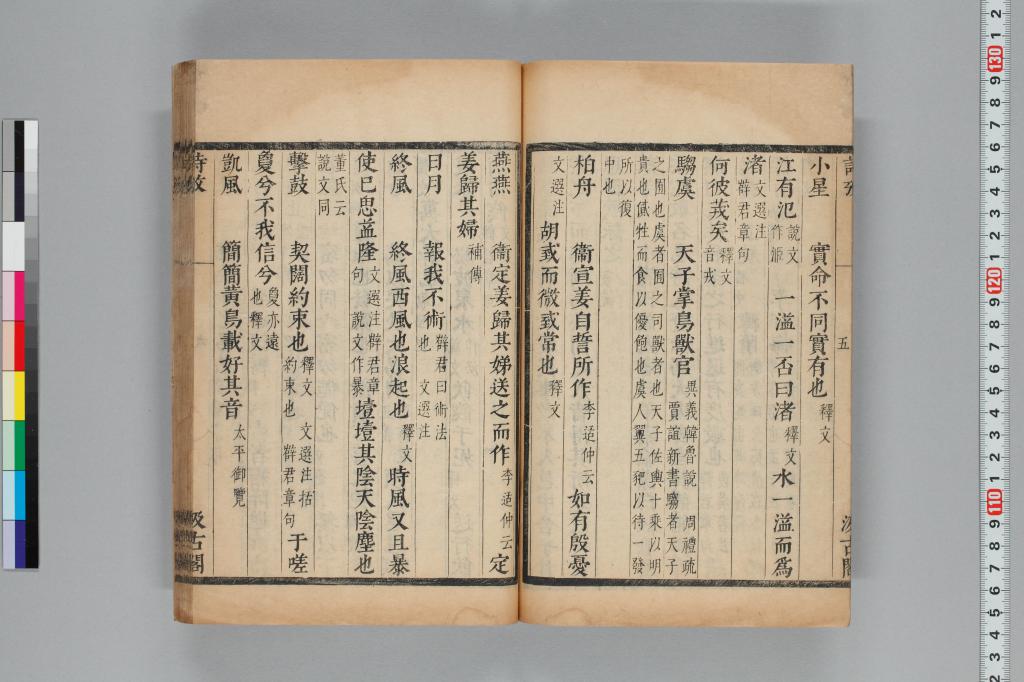 小星　實命不同實有也釋文
江有汜說文作洍　一溢一否曰渚釋文　水一溢而爲
渚文選注薛君章句
何彼茙矣釋文音戎
騶虞　天子掌鳥獸官異義韓魯說　周禮疏賈誼新書騶者天子
之囿也虞者囿之司獸者也天子佐輿十乘以明
貴也貳牲而食以優飽也虞人翼五豝以待一發
所以復中也
柏舟　衞宣姜自誓所作李适仲云　如有殷憂
文選注　胡㦯而微㦯常也釋文
燕燕　衞定姜歸其娣送之而作李适仲云　定
姜歸其婦補傳
日月　報我不術薛君曰術法也　文選注
終風　終風西風也浪起也釋文　時風又且暴
使已思益隆文選注薛君章句　說文作瀑　壇壇其陰天陰塵也
董氏云說文同
擊鼓　契闊約束也釋文　文選注括約束也　薛君章句　于嗟
夐兮不我信兮夐亦遠也釋文
凱風　簡簡黃鳥載好其音太平御覽
五
汲古閣
詩攷
汲古閣